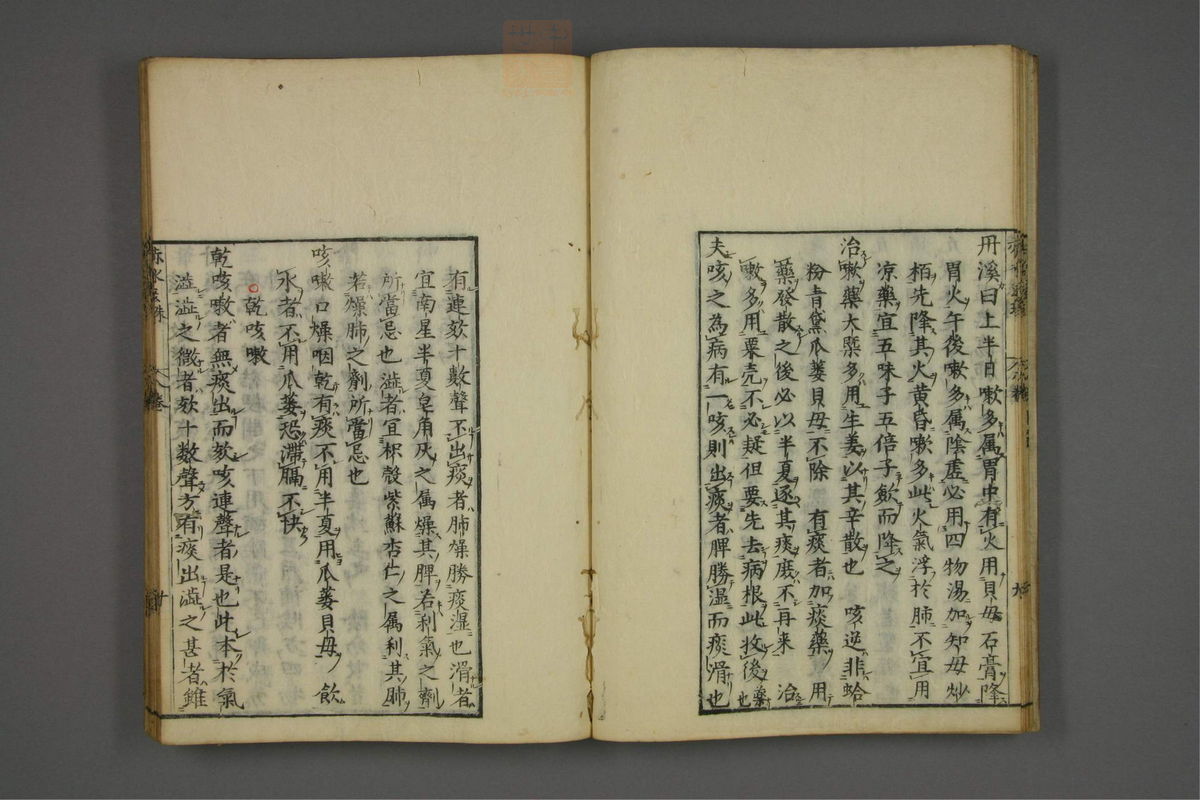 丹溪曰上半日嗽多属胃中有火用貝毋石膏降
胃火午後嗽多属陰虚必用四物湯加知毋炒
栢先降其火黄昏嗽多此火氣浮於肺不宜用
凉藥宜五味子五倍子歛而降之
治嗽藥大槩多用生姜以其辛散也 咳逆非蛤
粉青黛瓜蔞貝毋不除 有痰者加痰藥 用
藥發散之後必以半夏逐其痰庶不再来 治
嗽多用粟壳不必疑但要先去病根此收後藥也
夫咳之為病有一咳則出痰者脾勝湿而痰滑也
有連欬十數聲不出痰者肺燥勝痰湿也滑者
宜南星半夏皂角灰之属燥其脾若利氣之劑
所當忌也澁者宜枳殻紫蘇杏仁之属利其肺
若燥肺之劑所當忌也
咳嗽口燥咽乾有痰不用半夏用瓜蔞貝毋 飲
水者不用瓜蔞恐滯膈不快
乾咳嗽
乾咳嗽者無痰出而欬咳連聲者是也此本於氣
澁澁之微者欬十數聲方有痰出澁之甚者雖
赤水玄珠